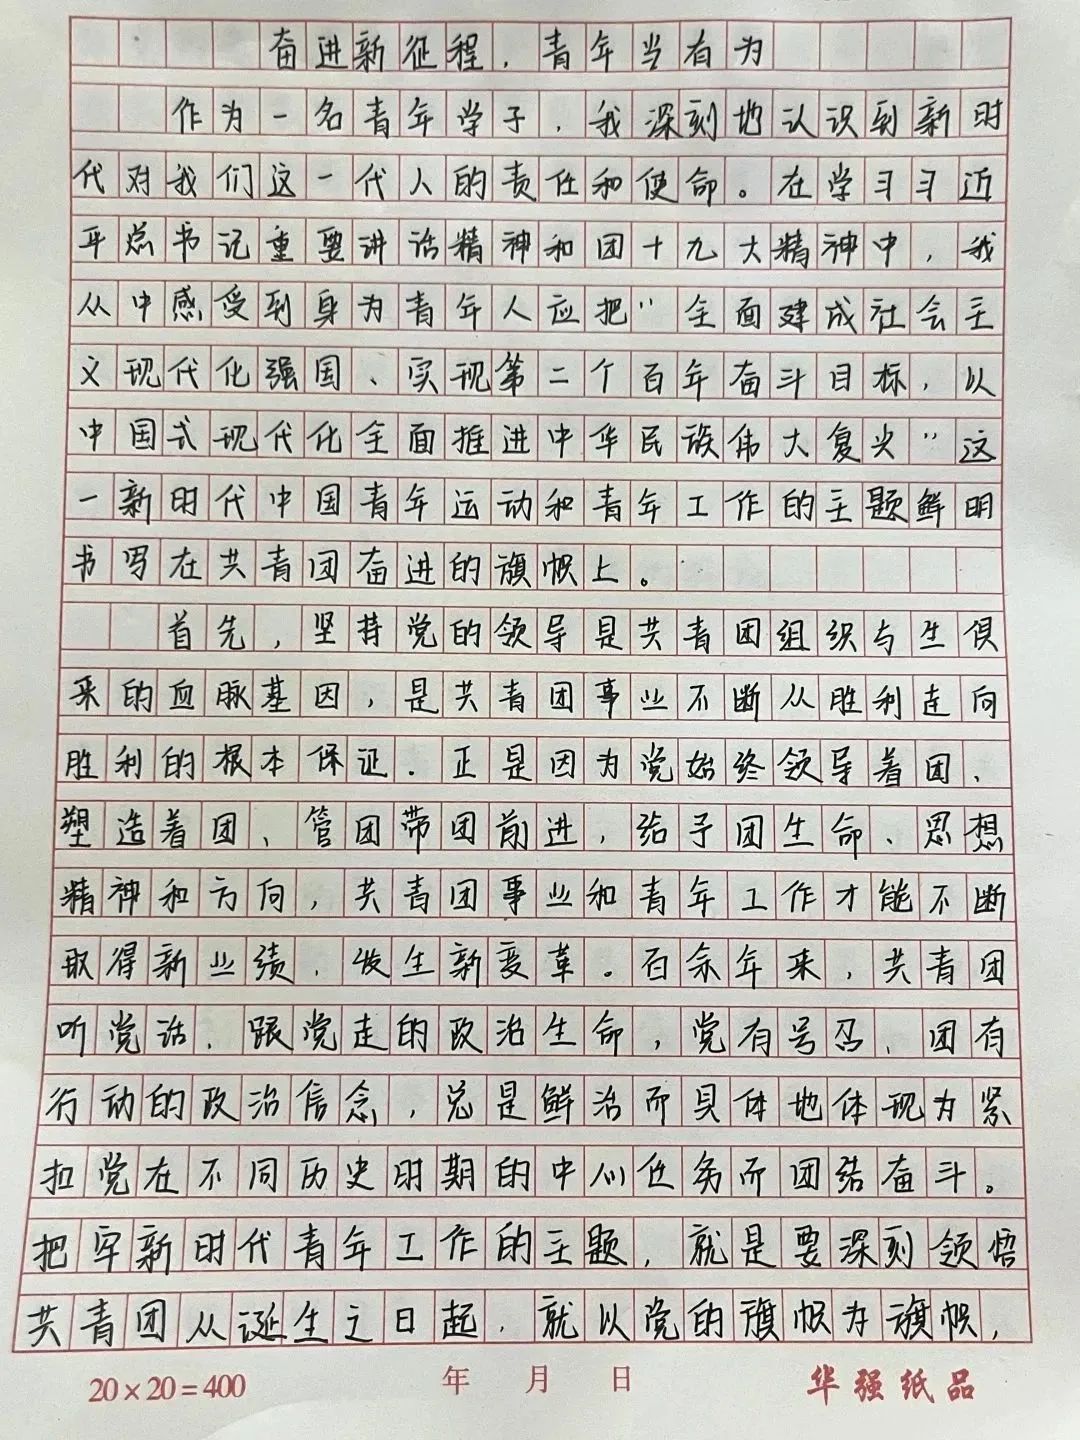 奋进新征程，青年当有为
作为一名青年学子，我深刻地认识到新时
代对我们这一代人的责任和使命。在学习习近
平总书记重要讲话精神和团十九大精神中，我
从中感受到身为青年人应把“全面建成社会主
义现代化强国、实现第二个百年奋斗目标，以
中国式现代化全面推进中华民族伟大复兴”这
一新时代中国青年运动和青年工作的主题鲜明
书写在共青团奋进的旗帜上。
首先，坚持党的领导是共青团组织与生俱
来的血脉基因，是共青团事业不断从胜利走向
胜利的根本保证．正是因为党始终领导着团、
塑造着团、管团带团前进，给予团生命、思想
精神和方向，共青团事业和青年工作才能不断
取得新业绩、发生新变革。百余年来，共青团
听党话、跟党走的政治生命，党有号召、团有
行动的政治信念，总是鲜活而具体地体现为紧
扣党在不同历史时期的中心任务而团结奋斗。
把牢新时代青年工作的主题，就是要深刻领悟
共青团从诞生之日起，就以党的旗帜为旗帜，
20×20=400 年 月 日 华强纸品